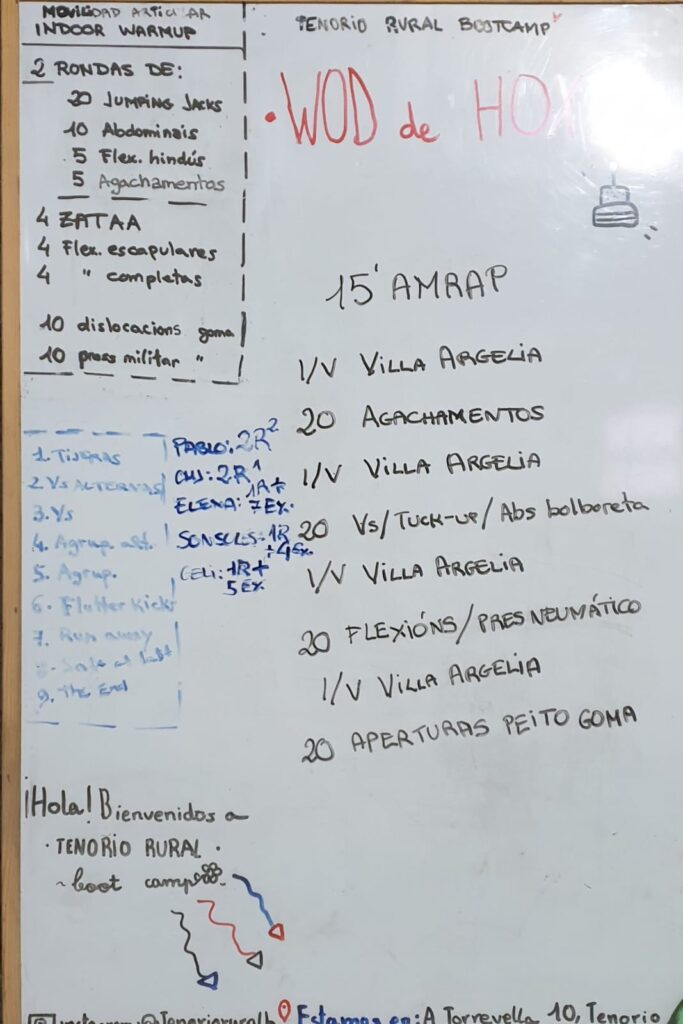 MOVILIDAD ARTICULAR
INDOOR WARMUP
2 RONDAS DE:
20 JUMPING JACKS
10 Abdominais
5 Flex. hindús
5 Agachamentos
4 ZATAA
4 Flex. escapulares
4 " completas
10 dislocacions goma
10 press militar "
TENORIO RURAL BOOTCAMP
• WOD de HOX
15' AMRAP
I/V VILLA ARGELIA
20 AGACHAMENTOS
I/V VILLA ARGELIA
20 Vs/TUCK-UP/Abs bolboreta
I/V VILLA ARGELIA
20 FLEXIÓNS/PRES NEUMÁTICO
I/V VILLA ARGELIA
20 APERTURAS PEITO GOMA
1. TIJERAS
2. Vs ALTERNAS
3. Vs
4. Agrup. alt.
5. Agrup.
6. Flutter kicks
7. Run away
Safe at last
9. The End
PABLO: 2R²
2R¹
ELENA: 1R+
7 EX.
SONSOLES: 1R
+4 Ex.
CELI: 1R+
5 EX
¡Hola! Bienvenidos a
• TENORIO RURAL •
~ boot camp
Estamos en: A Torrevella 10, Tenorio